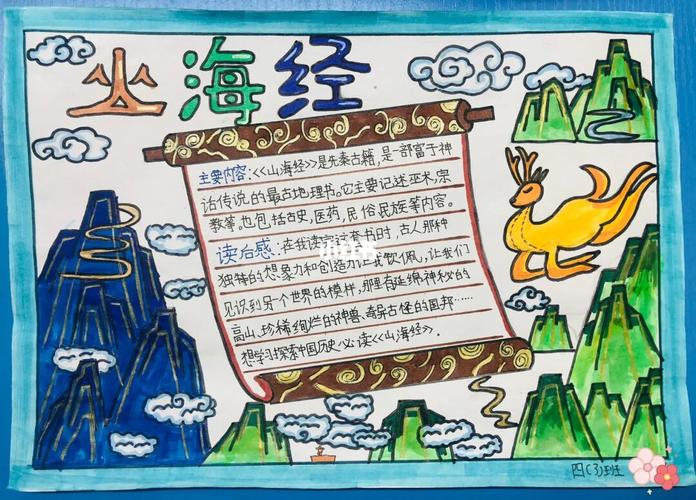 山海经
主要内容:《山海经》是先秦古籍,是一部富于神
话传说的最古地理书。它主要记述巫术,宗
教等。也包括古史,医药,民俗民族等内容。
读后感:在我读完这套书时,古人那种
独特的想象力和创造力让我饮佩,让我们
见识到另个世界的模样,那里有延绵神秘的
高山、珍稀绚烂的神兽、奇异古怪的国邦……
想学习探索中国历史,必读《山海经》.
四(3)班